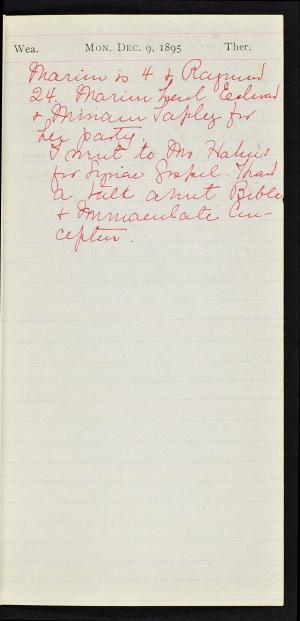 Wea. Mon. Dec. 9, 1895 Ther.
Marion is 4 & Raymund
24. Marion had Edward
& Miriam Tapley for
her party.
I went to Mrs
for Syriac Gospel. I had
a talk about Bible
& Immaculate Con-
ception.